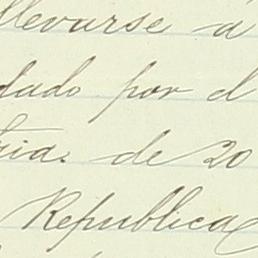 llevarse á
dado por el
de 20
Republica